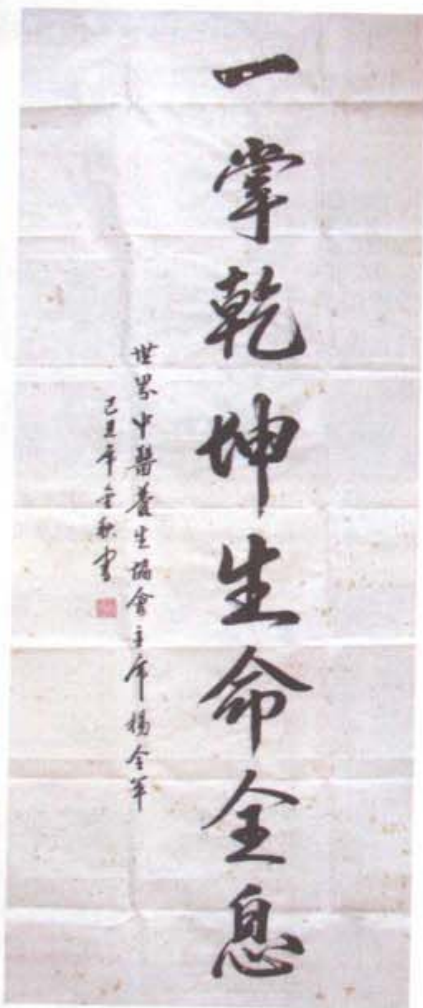 一掌乾坤生命全息
世界中醫養生協會主席楊全軍
己丑年金秋書